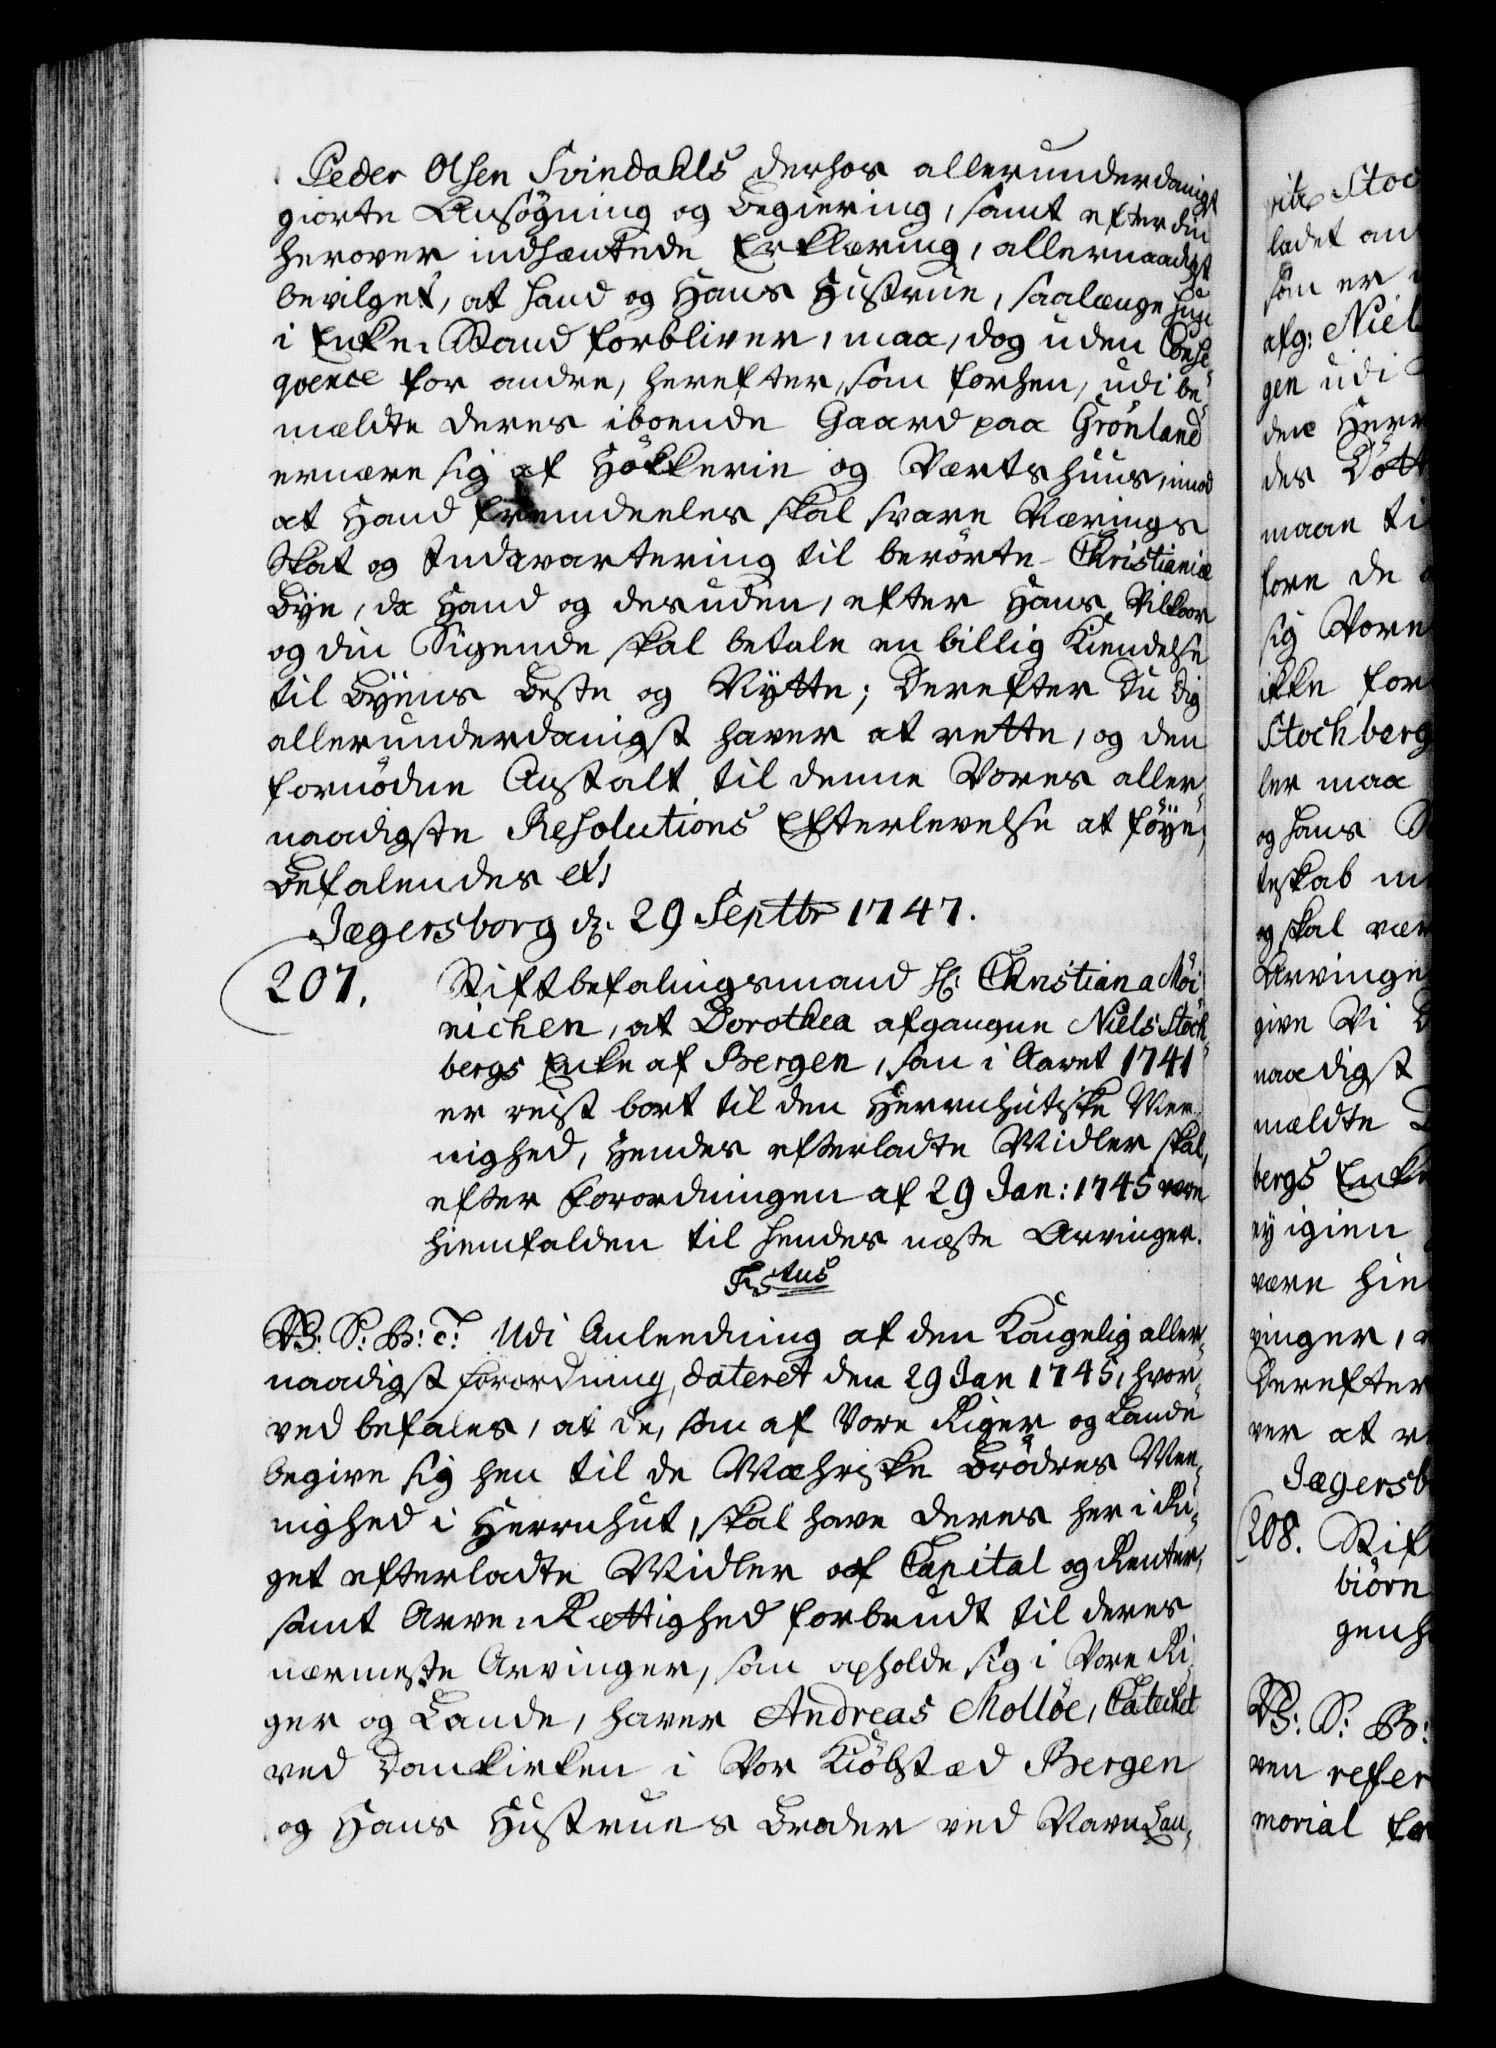 Peder Olsen Svindahls derhos allerunderdanigst
giorte Ansøgning og Begiering, samt efter din
herover indhæntede Erklæring, allernaadigst
bevilget, at hand og Hans Hustrue, saalænge hun
i Enke-Stand forbliver, maa, dog uden Conse-
qvence for andre, herefter, som forhen, udi be-
mældte deres iboende Gaard paa Grønland
ernære sig af Høkkerie og Værtshuus, imod
at Hand fremdeeles skal svare Nærings
Skat og Indqvartering til berørte Christianiæ
Bye, da Hand og desuden, efter Hans Vilkoor
og din Sigende skal betale en billig Kiendelse
til Byens Beste og Nytte; Derefter Du dig
allerunderdanigst haver at rette, og den
fornødne Anstalt til denne Vores aller-
naadigste Resolutions Efterlevelse at føye,
Befalendes etc
Jægersborg d. 29 Septbr 1747.
207. Stiftbefalingsmand H: Christian a Møi-
nichen, at Dorothea afgangne Niels Stoch-
bergs Enke af Bergen, som i Aaret 1741
er reist bort til den Herrnhutiske Mee-
nighed, Hendes efterladte Midler skal,
efter Forordningen af 29 Jan: 1745 være
hiemfalden til hendes næste Arvinger.
F: 5tus
V: S: B: T: Udi Anleedning af den Kongelig aller-
naadigst Forordning, dateret den 29 Jan 1745, hvor-
ved befales, at de, som af Vore Riger og Lande
begive sig hen til de Mæhriske Brødres Mee-
nighed i Herrnhut, skal have deres her i Ri-
get efterladte Midler af Capital og Renter,
samt Arve-Rettighed forbrudt til deres
nærmeste Arvinger, som opholde sig i Vore Ri-
ger og Lande, haver Andreas Molløe, Catechet
ved Domkirken i Vor Kiøbstæd Bergen
og Hans Hustrues Broder ved Navn Lau-
ladet an
som er
afg: Niel
gen udi
den Herr
des Døtt
maae ti
fore de
sig Vore
ikke for
Stochberg
ler maa
og hans
teskab
og skal vær
Arvinge
give Vi
naadigst
mældte
bergs Enke
ey igien
være hie
vinger,
Derefter
ver at
Jægersb
208. Stif
biørn
genh
V: S: B:
ven refer
morial for